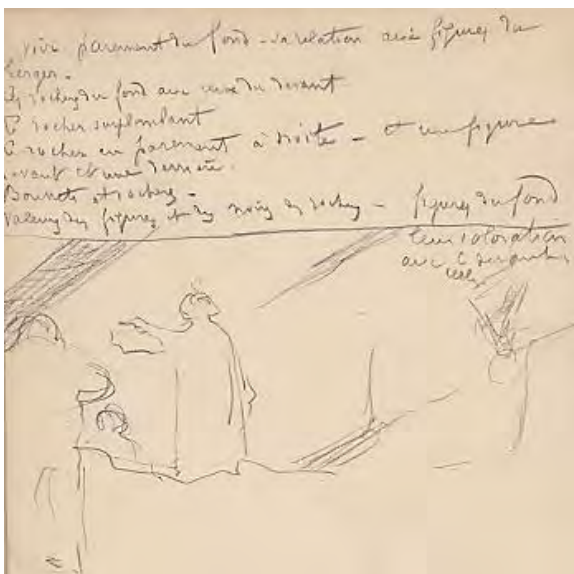 parement du fond - sa relation avec figures du
berger -
rochers du fond avec ceux du devant
rocher surplombant
rocher en parement à droite - et une figure
devant et une derrière.
Bonnets et rochers -
Valeur des figures et des noirs des rochers - figures du fond
leur coloration
avec